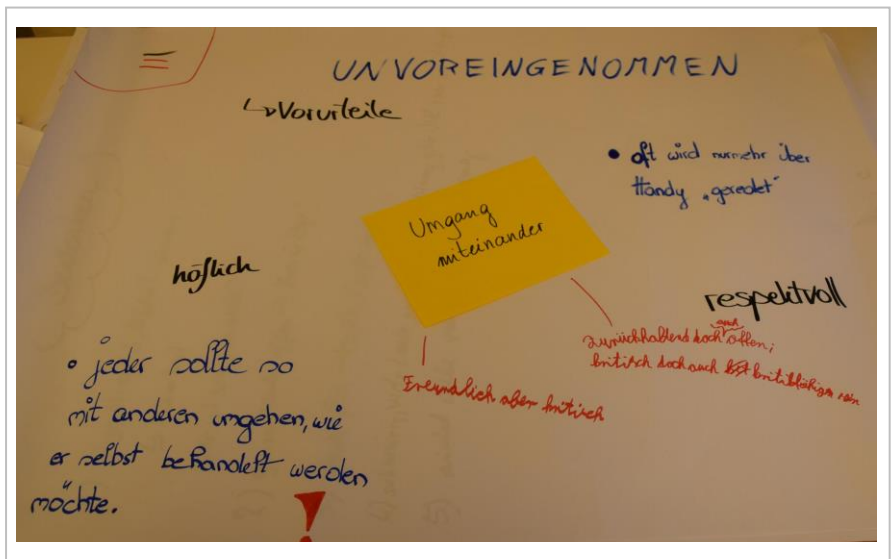 UNVOREINGENOMMEN
↳Vorurteile
• oft wird nurmehr über
Handy „geredet“
Umgang
miteinander
höflich
respektvoll
zurückhaltend doch auch offen;
kritisch doch auch kritikfähig sein
Freundlich aber kritisch
• jeder sollte so
mit anderen umgehen, wie
er selbst behandelt werden
möchte.
!